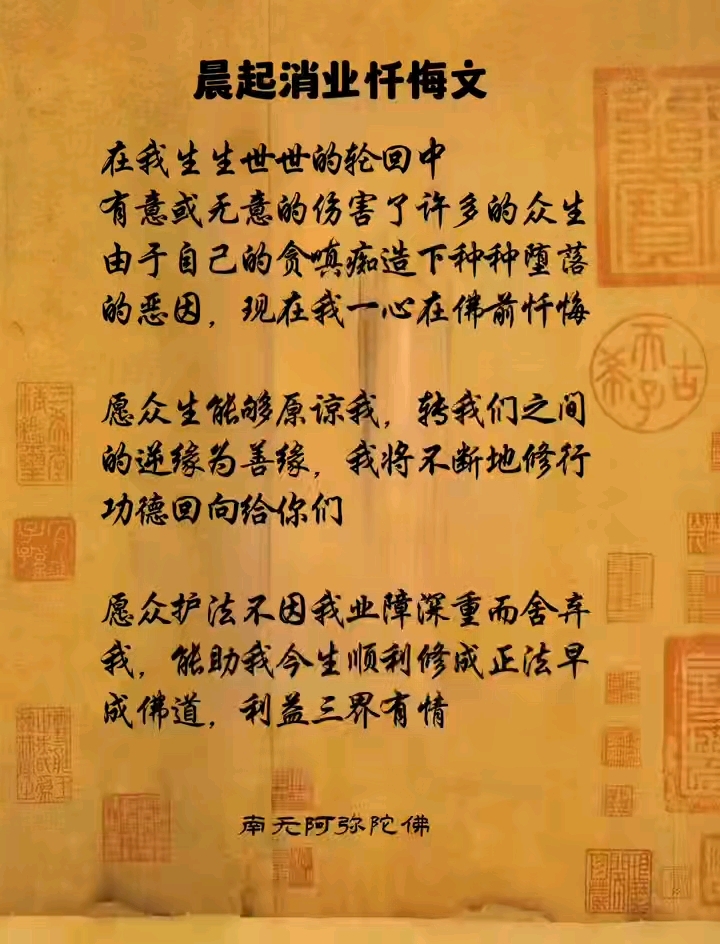 晨起消业忏悔文
在我生生世世的轮回中
有意或无意的伤害了许多的众生
由于自己的贪嗔痴造下种种堕落
的恶因，现在我一心在佛前忏悔
愿众生能够原谅我，转我们之间
的逆缘为善缘，我将不断地修行
功德回向给你们
愿众护法不因我业障深重而舍弃
我，能助我今生顺利修成正法早
成佛道，利益三界有情
南无阿弥陀佛
古希天子